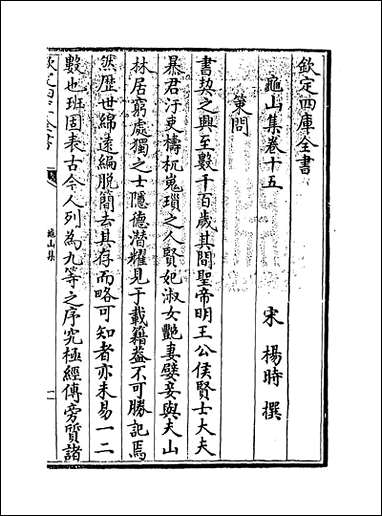 欽定四庫全書
龜山集卷十五
宋 楊時 撰
策問
書契之興至數千百歲其間聖帝明王公侯賢士大夫
暴君汙吏檮杌嵬瑣之人賢妃淑女艷妻嬖妾與夫山
林居窮處獨之士隱德潛耀見于載籍葢不可勝記焉
然歴世綿遠編脱簡去其存而略可知者亦未易一二
數也班固表古今人列為九等之序究極經傳旁質諸
欽定四庫全書
龜山集
一